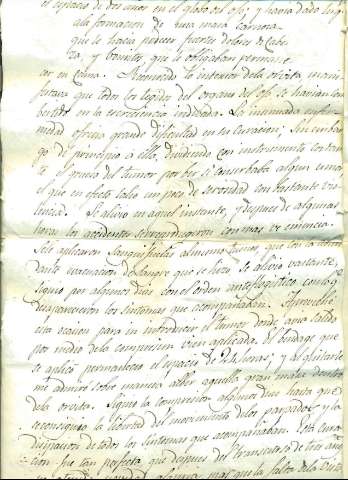 el espacio de dos anos en el globo del ojo; y havia dado lugar
a la formacion de una masa carnosa
que le hacia padecer fuertes dolores de Cabe-
za, y vomitos, que le obligaban permane-
cer en Cama. Reconocido lo interior dela orvita mani-
festava que todos los tegidos del organo del ojo se havian con-
bertido en la excrecencia indicada. La insinuada enfer-
medad ofrecia grande dificultad en su curacion; Sin embar-
go di principio a ella, dividiendo con instrumento cortan-
te el grueso del tumor por ber si conserbaba algun umor
el que en efecto salio un poco de serosidad con bastante vio-
lencia. Se alivio en aquel instante, y despues de algunas
horas los accidentes sobrevinieron con mas vehemencia.
Se le aplicaron Sanguijuelas al mismo tumor, que con la abun-
dante evacuacion de sangre que se hizo se alivio vastante,
siguio por algunos dias con el orden antiflogistico con que
desaparecieron los sintomas que acompañaban. Aproveche
esta ocasion para introducir el tumor donde avia salido
por medio dela compresion bien aplicada. El bendage que
se aplico permanecio el espacio de 24 horas; y al quitarle
me admiró sobre manera alber aquella gran masa dentro
dela orvita. Siguio la compresion algunos dias hasta que
se consiguio la libertad del movimiento delos parpados y la
disipacion de todos los sintomas que acompañaban. Esta cura-
cion fue tan perfecta que despues del transcurso de tres años
novedad alguna mas que la falta dela Vista